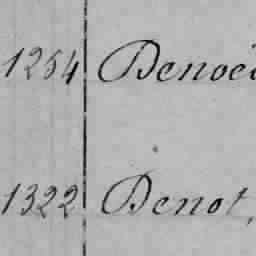 1254 Denoë
1322 Denot,